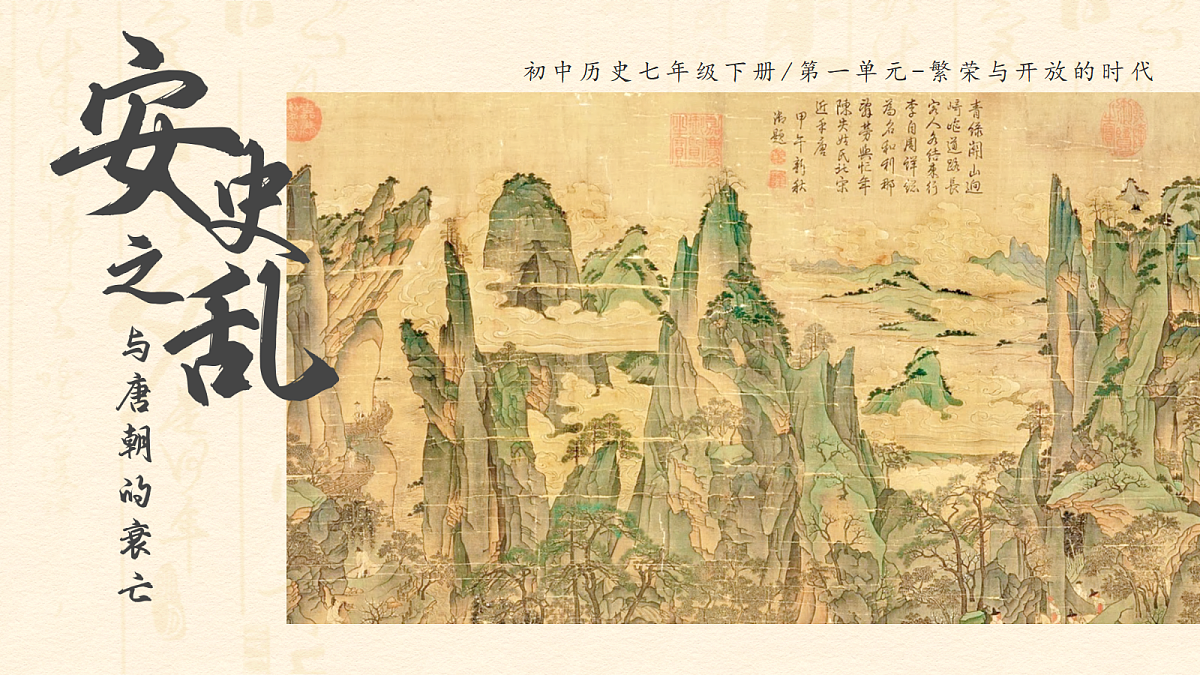 初中历史七年级下册/第一单元-繁荣与开放的时代
安史之乱
与唐朝的衰亡
青绿关山迥
崎岖道路长
客人各结束行
李自周详总
为名和利那
辞劳与忙年
陈失姓氏北宋
近乎唐
甲午新秋
御题